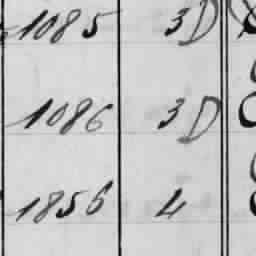 1085 3D
1086 3D
1856 4